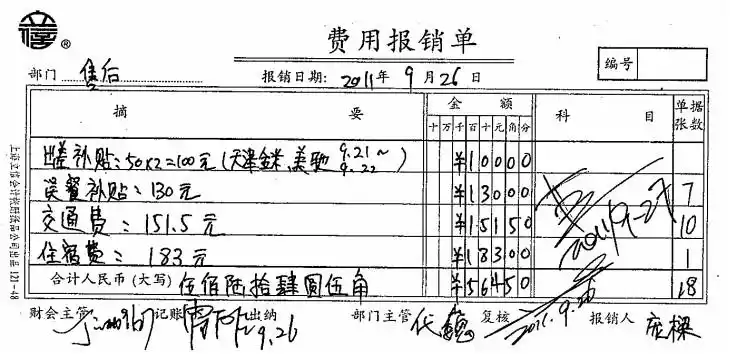 费用报销单
编号
部门 售后 报销日期: 2011年9月26日
摘要 金额 科目 单据张数
十万千百十元角分
出差补贴:50×2=100元(天津金米,美驰 9.21~9.22) ¥10000
误餐补贴:130元 ¥13000 7
交通费:151.5元 ¥15150 10
住宿费:183元 ¥18300 1
合计人民币(大写) 伍佰陆拾肆圆伍角 ¥56450 18
2011.9.27
财会主管 记账 出纳 9.26 部门主管 复核 2011.9.26 报销人 庞樑
上海立信会计纸用品公司出品 121-48